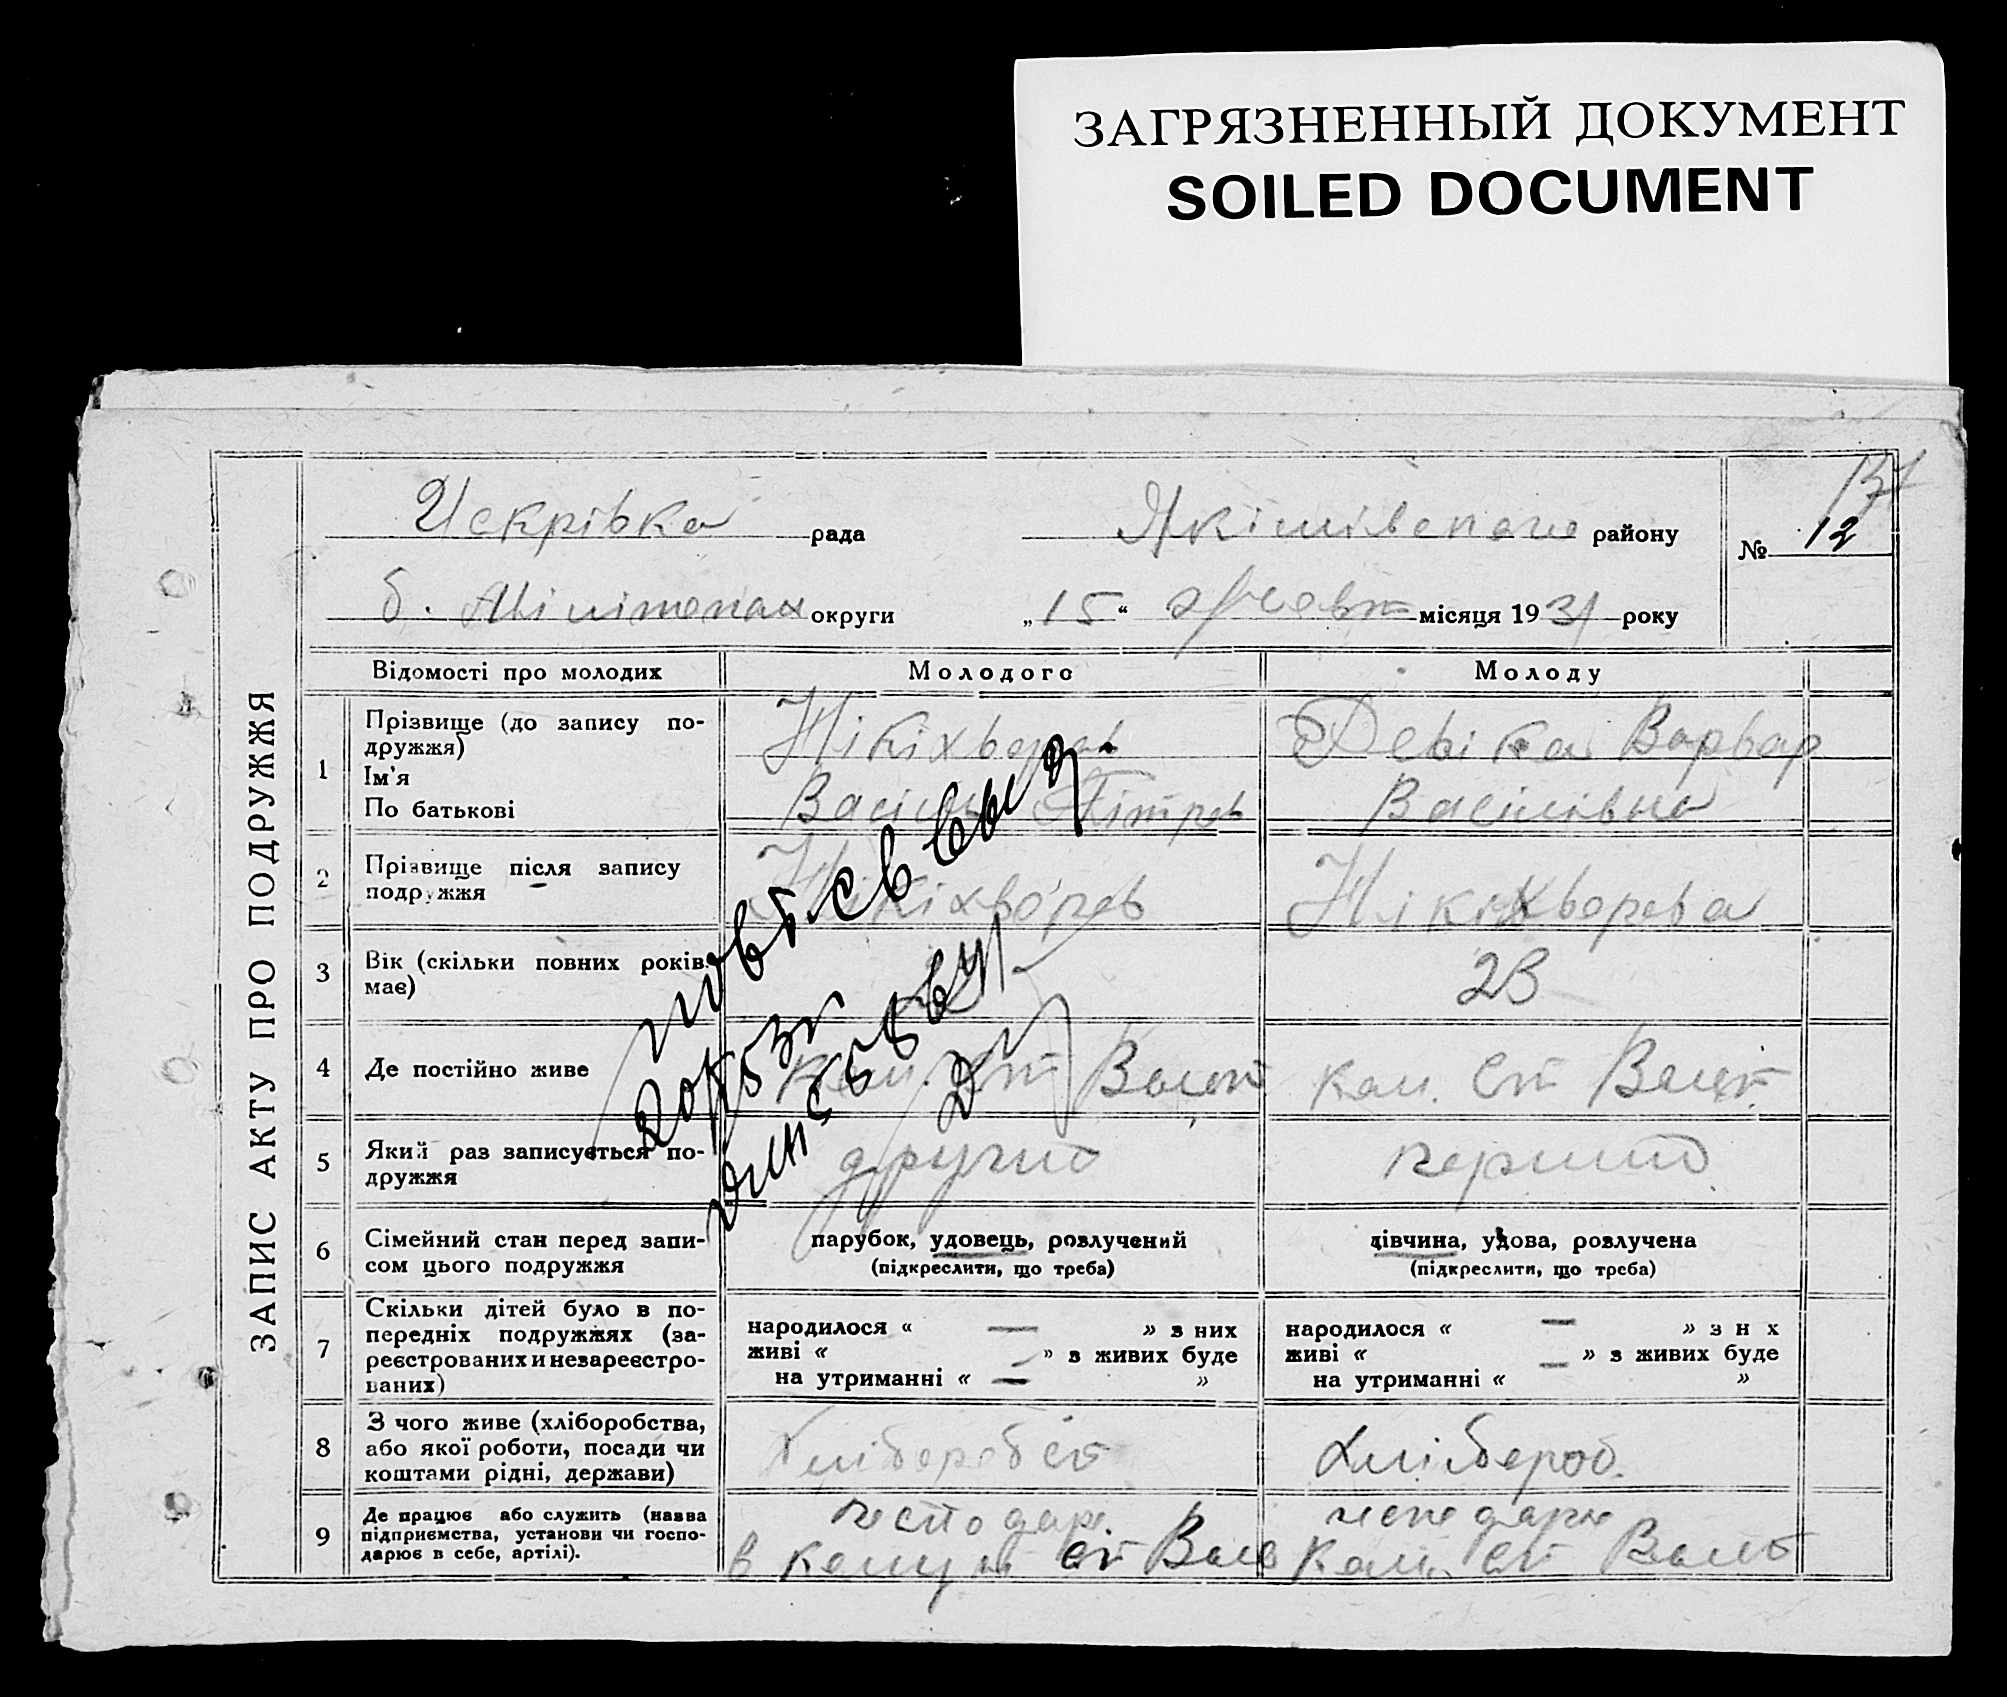 ЗАГРЯЗНЕННЫЙ ДОКУМЕНТ
SOILED DOCUMENT
ЗАПИС АКТУ ПРО ПОДРУЖЖЯ
Искрівка рада
району
№ 12
б. округи
„15“ місяця 1931 року
Відомості про молодих
Молодого
Молоду
1
Прізвище (до запису по-
дружжя)
Ім'я
По батькові
Нікіхворов
Васіль Пітров
Девіка Варвар
Васілівна
2
Прізвище після запису
подружжя
Нікіхворов
Нікіхворова
3
Вік (скільки повних років
має)
23
4
Де постійно живе
Ком. Ст
ком. Ст
5
Який раз записується по-
дружжя
другий
перший
6
Сімейний стан перед запи-
сом цього подружжя
парубок, удовець, розлучений
(підкреслити, що треба)
дівчина, удова, розлучена
(підкреслити, що треба)
7
Скільки дітей було в по-
передніх подружжях (за-
реєстрованих и незареєстро-
ваних)
народилося « — » з них
живі « — » з живих буде
на утриманні « — »
народилося « — » з н х
живі « — » з живих буде
на утриманні « »
8
З чого живе (хліборобства,
або якої роботи, посади чи
коштами рідні, держави)
Хліборобст
Хлібороб.
9
Де працює або служить (назва
підприємства, установи чи госпо-
дарює в себе, артілі).
господарю
в ком ст
господарю
Ком. ст